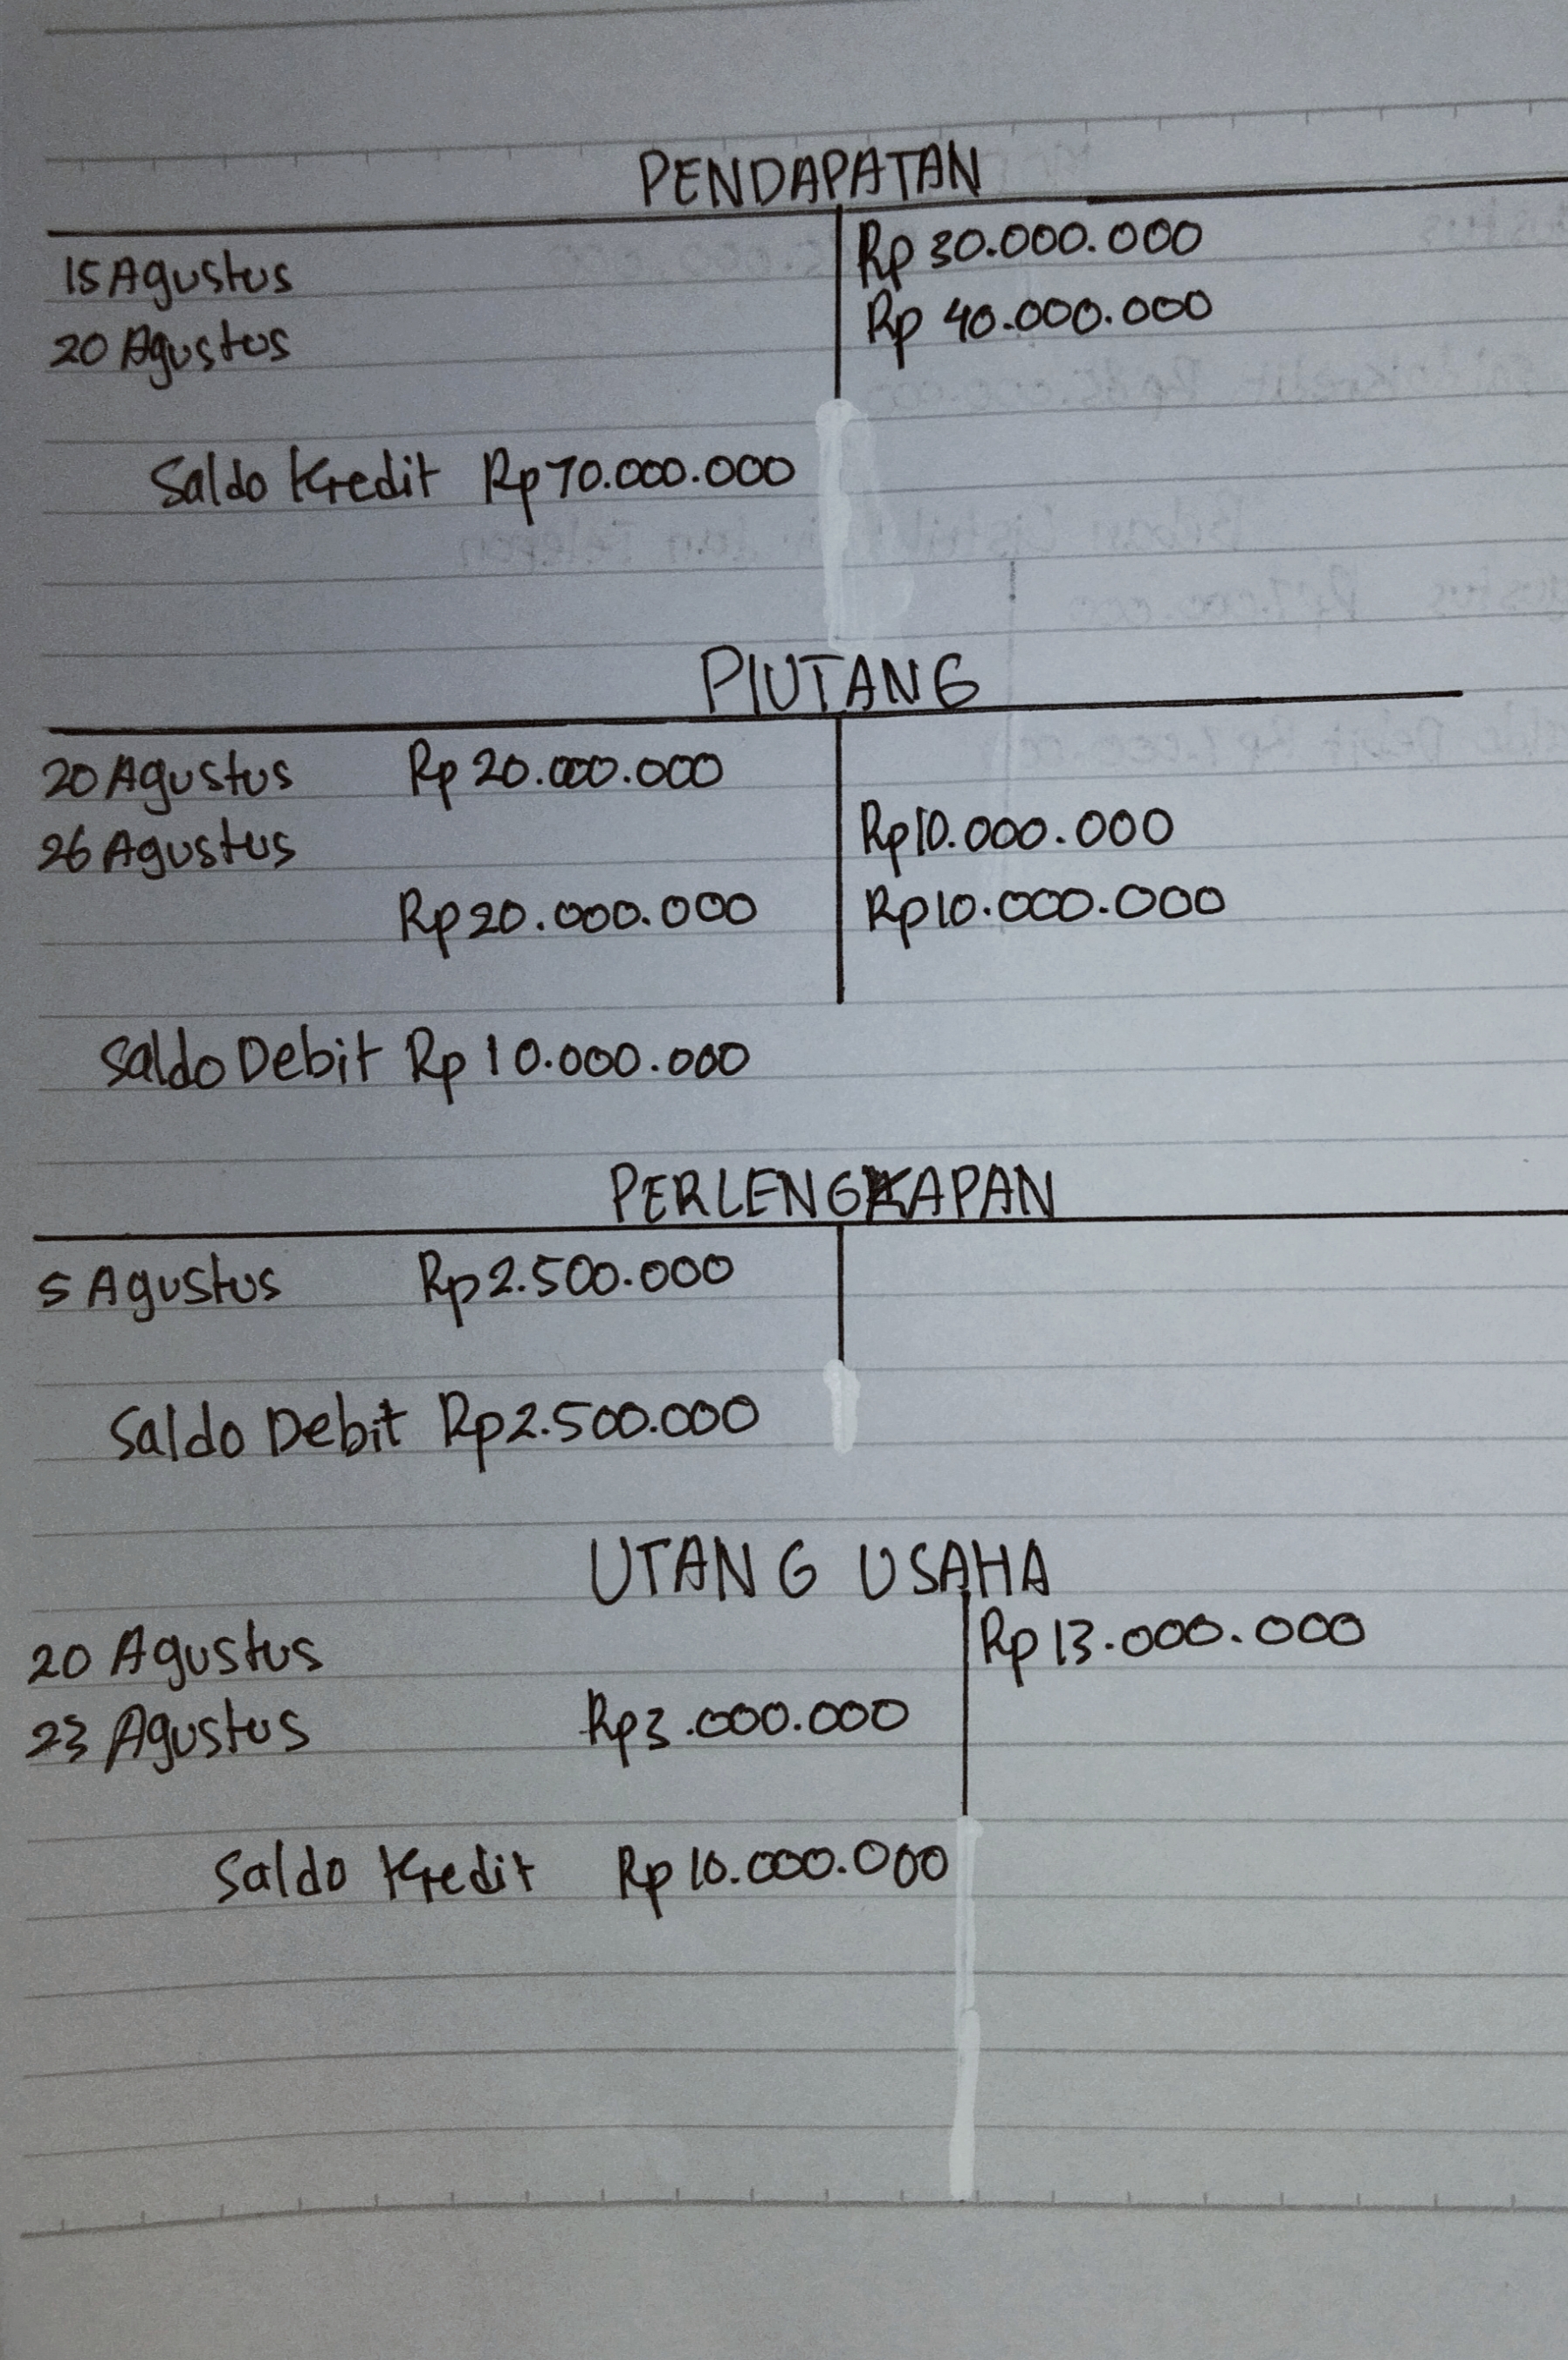 PENDAPATAN
15 Agustus Rp 30.000.000
20 Agustus Rp 40.000.000
Saldo Kredit Rp 70.000.000
PIUTANG
20 Agustus Rp 20.000.000
26 Agustus Rp 10.000.000
Rp 20.000.000 Rp 10.000.000
Saldo Debit Rp 10.000.000
PERLENGKAPAN
5 Agustus Rp 2.500.000
Saldo Debit Rp 2.500.000
UTANG USAHA
20 Agustus Rp 13.000.000
23 Agustus Rp 3.000.000
Saldo Kredit Rp 10.000.000